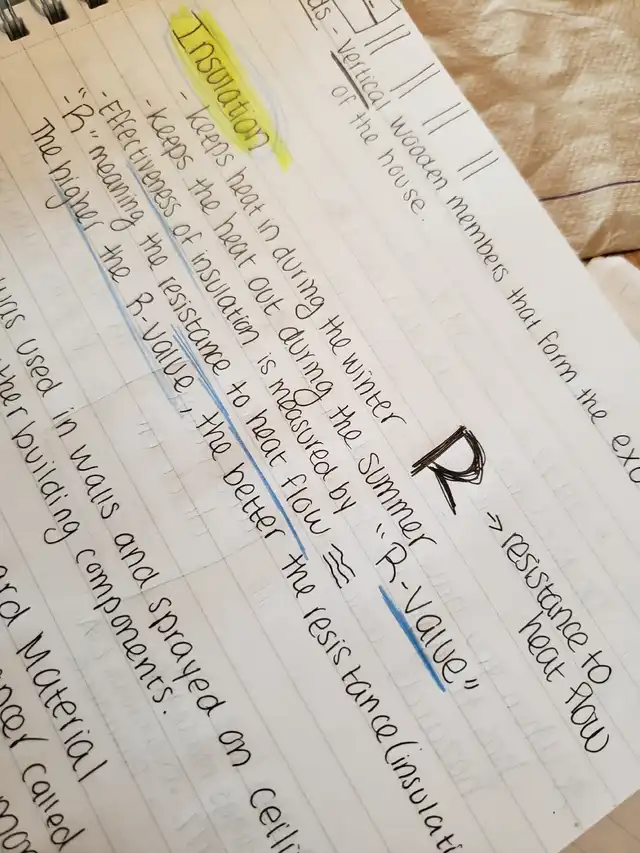 ds - Vertical wooden members that form the
of the house.
Insulation
- Keeps heat in during the winter
- Keeps the heat out during the summer
- Effectiveness of insulation is measured by "R-Value"
- "R" meaning the resistance to heat flow
The higher the R-Value, the better the resistance (insulati
R
→ resistance to
heat flow
was used in walls and sprayed on
ther building components.
ard Material
ncer called